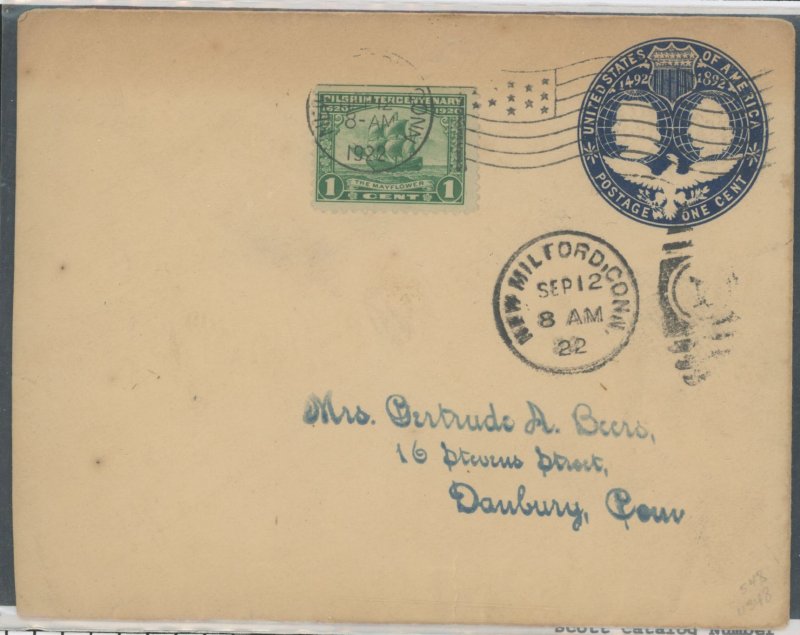 PILGRIM TERCENTENARY
1620 1920
12
8-AM
1922
THE MAYFLOWER
1 CENT 1
UNITED STATES OF AMERICA
1492 1892
POSTAGE ONE CENT
NEW MILFORD, CONN.
SEP 12
8 AM
22
Mrs. Gertrude A. Beers,
16 Stevens Street,
Danbury, Conn
548
U348
Scott Catalog Number